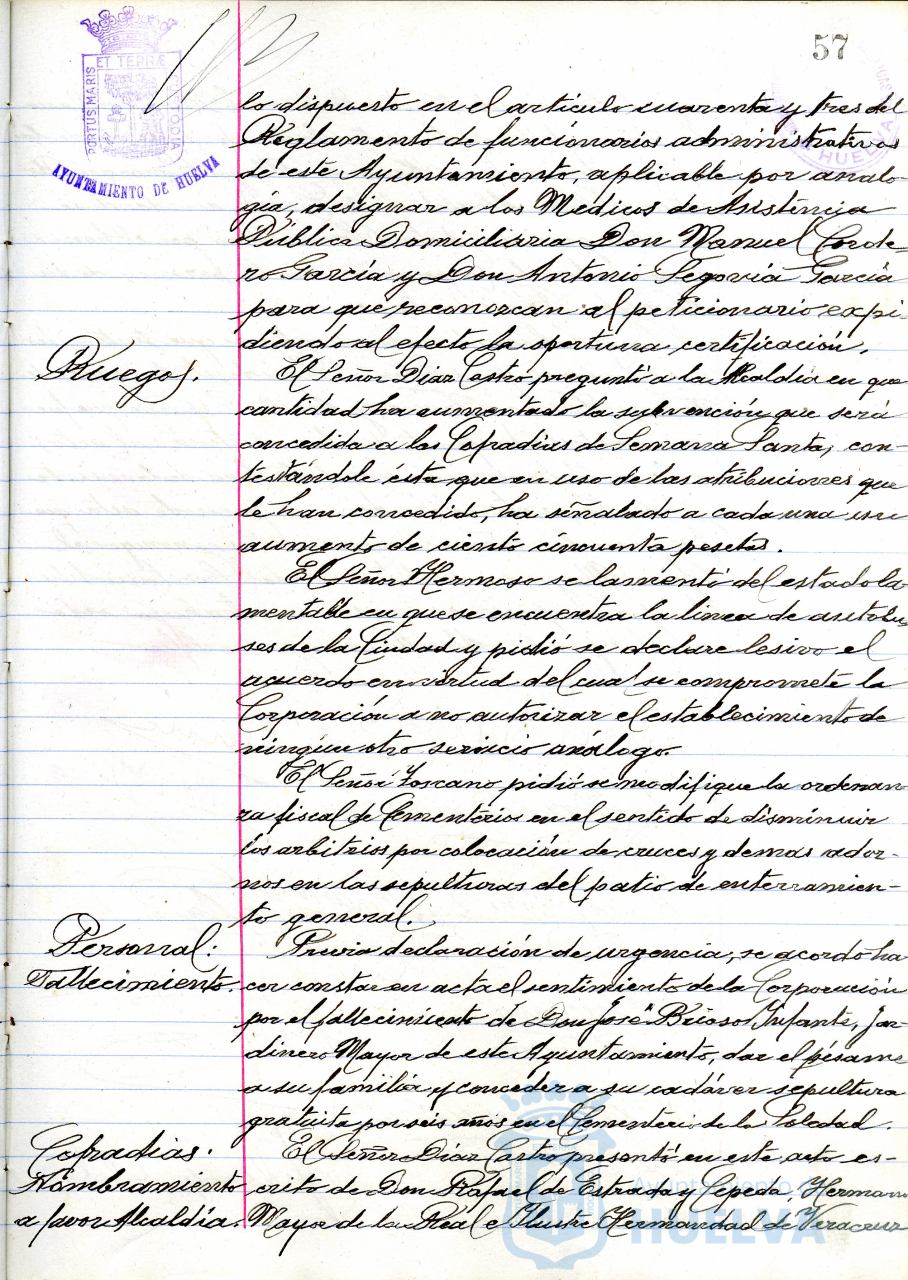 57
PORTUS MARIS ET TERRÆ CUSTODIA
AYUNTAMIENTO DE HUELVA
HUELVA
lo dispuesto en el artículo cuarenta y tres del
Reglamento de funcionarios administrativos
de este Ayuntamiento, aplicable por analo-
gía, designar a los Médicos de Asistencia
Pública Domiciliaria Don Manuel Corde-
ro García y Don Antonio Segovia García
para que reconozcan al peticionario expi-
diendo al efecto la oportuna certificación.
Ruegos.
El Señor Díaz Castro preguntó a la Alcaldía en que
cantidad ha aumentado la subvención que será
concedida a las Cofradías de Semana Santa, con-
testándole ésta que en uso de las atribuciones que
le han concedido, ha señalado a cada una un
aumento de ciento cincuenta pesetas.
El Señor Hermoso se lamentó del estado la-
mentable en que se encuentra la línea de autobu-
ses de la Ciudad y pidió se declare lesivo el
acuerdo en virtud del cual se compromete la
Corporación a no autorizar el establecimiento de
ningún otro servicio análogo.
El Señor Toscano pidió se modifique la ordenan-
za fiscal de Cementerios en el sentido de disminuir
los arbitrios por colocación de cruces y demás ador-
nos en las sepulturas del patio de enterramien-
to general.
Personal:
Fallecimiento.
Previa declaración de urgencia, se acordó ha-
cer constar en acta el sentimiento de la Corporación
por el fallecimiento de Don José Brioso Infante, Jar-
dinero Mayor de este Ayuntamiento, dar el pésame
a su familia y conceder a su cadáver sepultura
gratuita por seis años en el Cementerio de la Soledad.
Cofradías.
Nombramiento
a favor Alcaldía.
El Señor Díaz Castro presentó en este acto es-
crito de Don Rafael de Estrada y Cepeda, Hermano
Mayor de la Real e Ilustre Hermandad de Veracruz
Ayuntamiento de
HUELVA